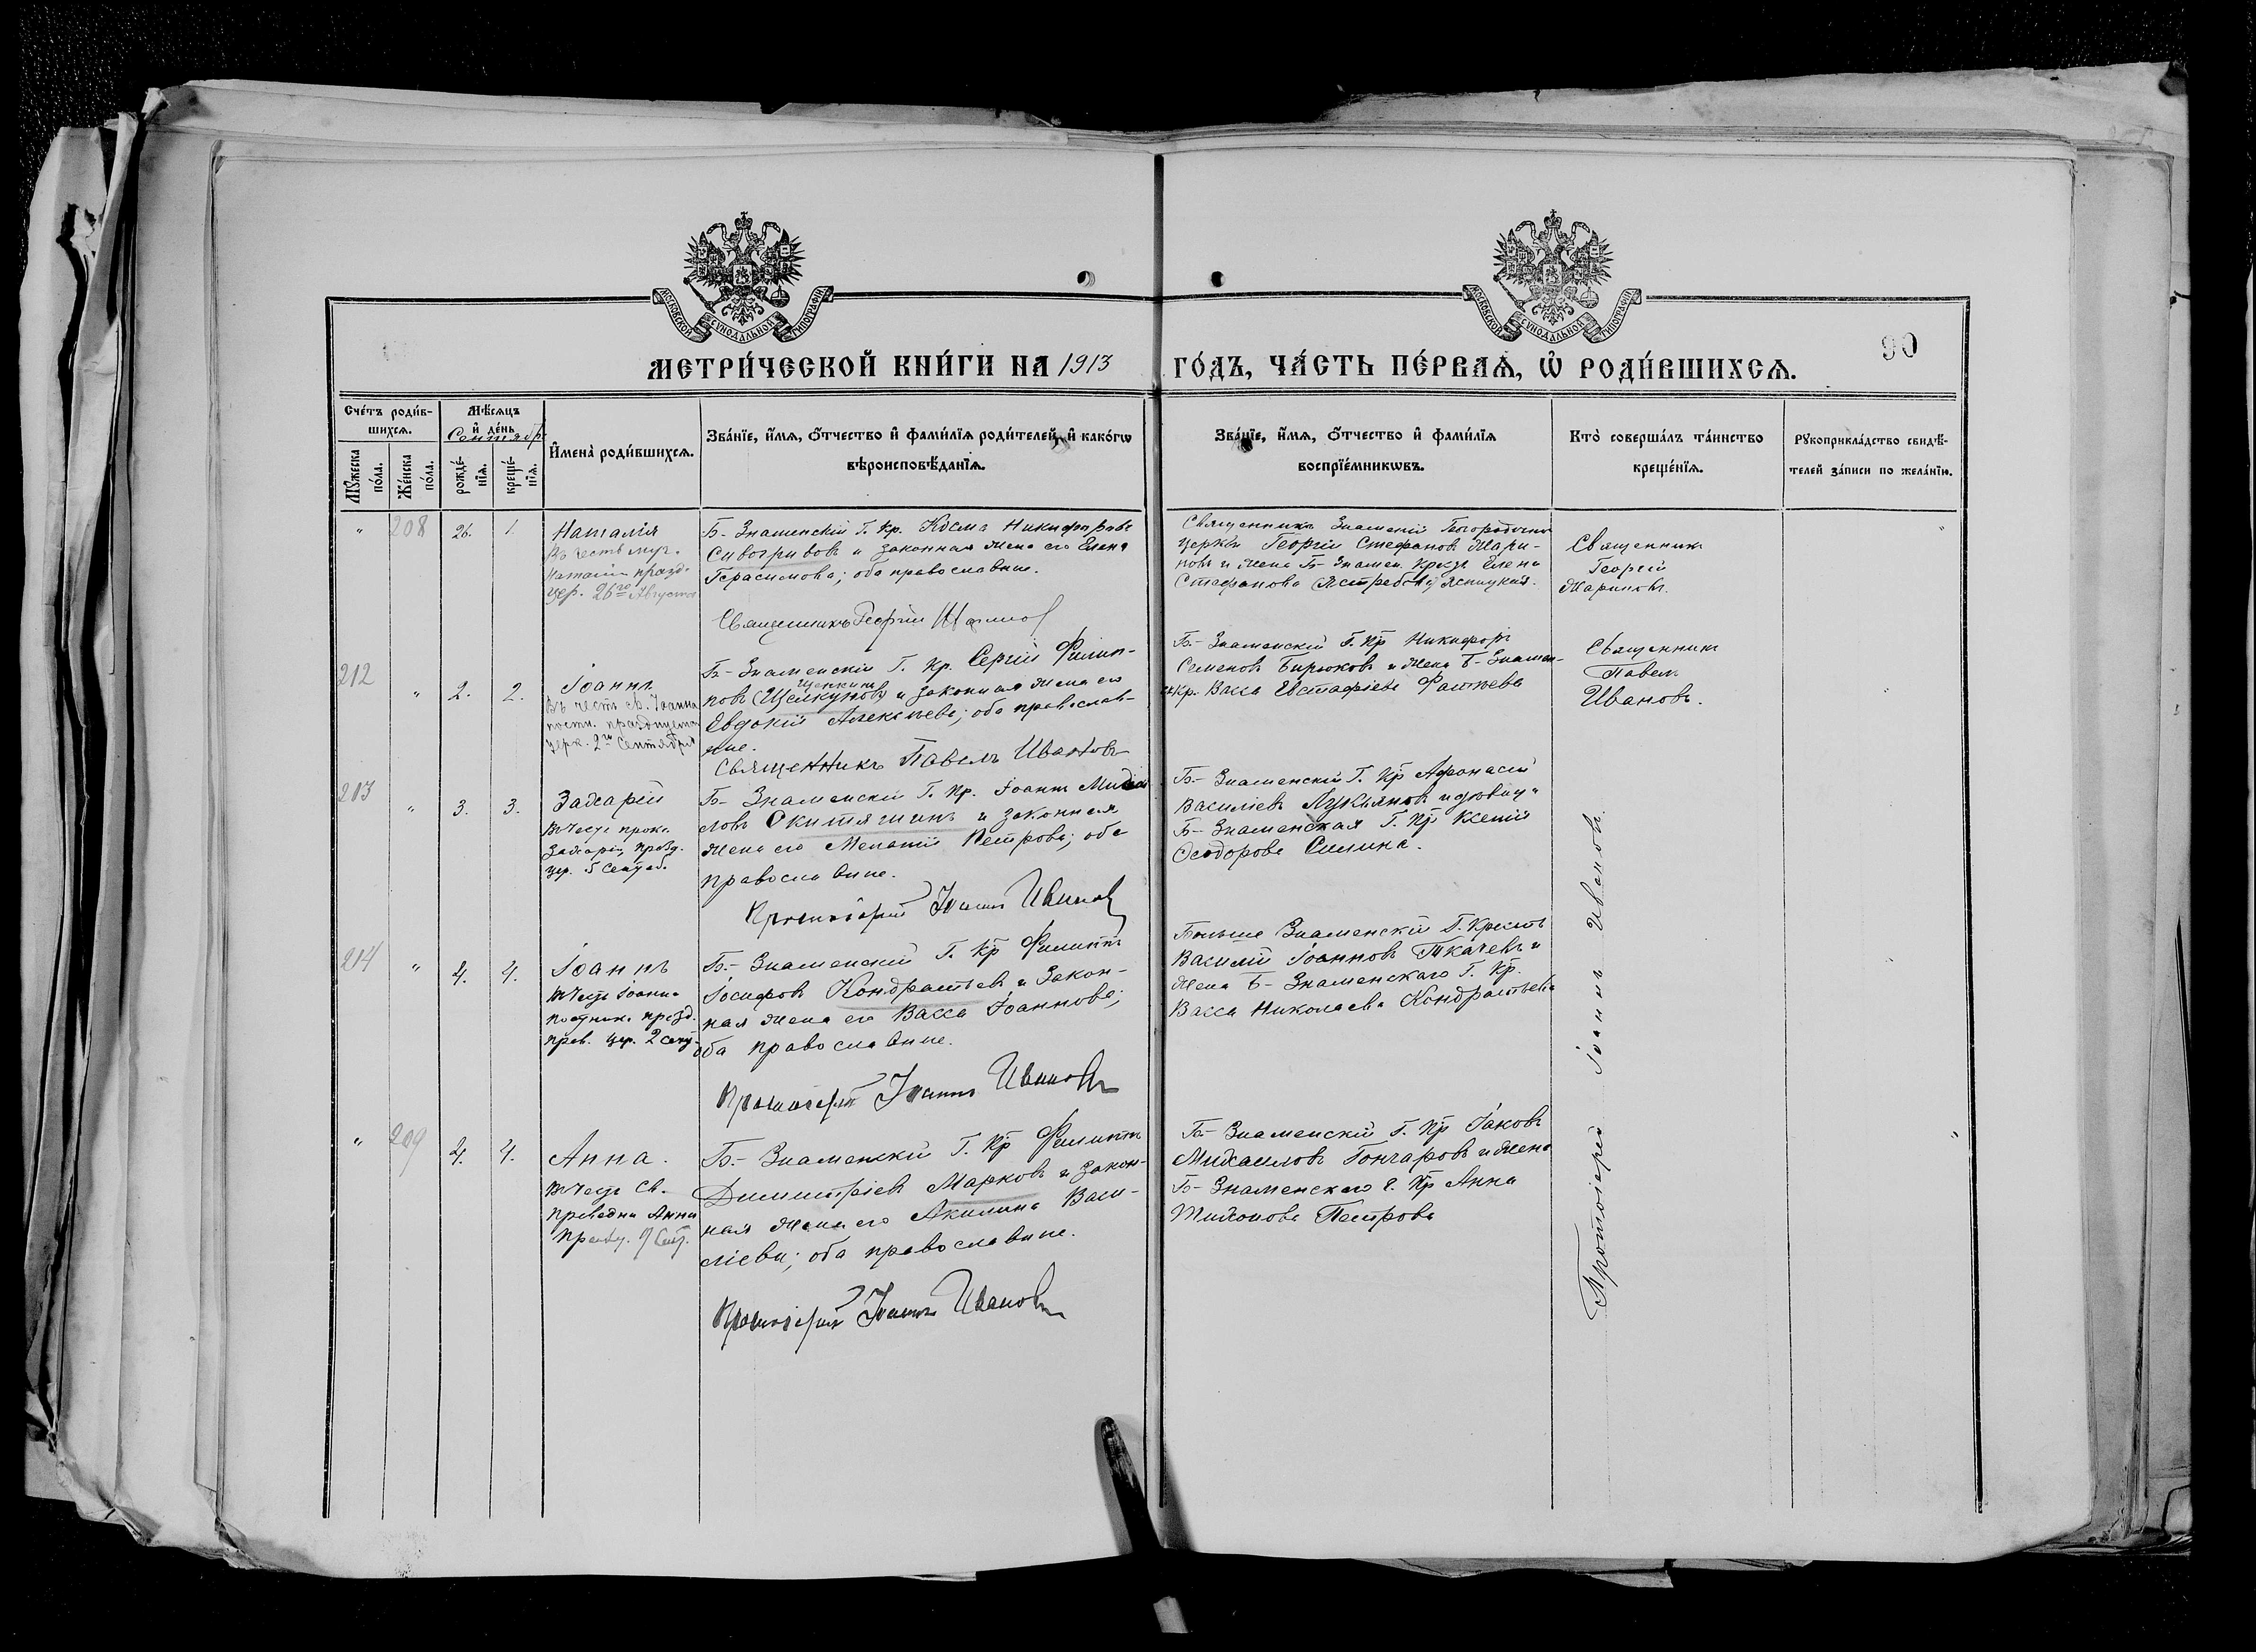 МОСКОВСКОЙ СѴНОДАЛЬНОЙ ТИПОГРАФІИ
МОСКОВСКОЙ СѴНОДАЛЬНОЙ ТИПОГРАФІИ
90
МЕТРИ́ЧЕСКОЙ КНИ́ГИ НА 1913 ГО́ДЪ, ЧА́СТЬ ПЕ́РВАѦ, Ѡ҆ РОДИ́ВШИХСѦ.
Сче́тъ роди́в-
шихсѧ.
Мꙋ́жеска
по́ла.
Же́нска
по́ла.
Мѣ́сѧцъ
и҆ де́нь
Сентябр
рожде́-
нїѧ.
креще́-
нїѧ.
И҆мена̀ роди́вшихсѧ.
Зва́нїе, и҆́мѧ, ѻ҆́тчество и҆ фами́лїѧ роди́телей, и҆ како́гѡ
вѣроисповѣ́данїѧ.
Зва́нїе, и҆́мѧ, ѻ҆́тчество и҆ фами́лїѧ
воспрїе́мникѡвъ.
Кто̀ соверша́лъ та́инство
креще́нїѧ.
Рꙋкоприкла́дство свидѣ́-
телей за́писи по жела́нїю.
" 208 26. 1.
Наталія
Въ честь муч.
Наталіи празд.
цер. 26го Августа
Б-Знаменскій Г. Кр. Косма Никифоровъ
Сивогривовъ и законная жена его Елена
Герасимова; оба православные.
Священникъ Георгій Мариновъ
Священникъ Знаменій Богородичной
церкви Георгій Стефановъ Мари-
новъ и жена Б-Знамен. Крест. Елена
Стефанова Ястребова
Священникъ
Георгій
Мариновъ.
212 " 2. 2.
Іоаннъ
Въ честь св. Іоанна
постн. празднуемаго
церк. 2го Сентября
Б-Знаменскій Г. Кр. Сергій Филип-
повъ (Щелкуновъ) и законная жена его
Щепкинъ
Евдокія Алексѣева; оба православ-
ные.
Священникъ Павелъ Ивановъ
Б-Знаменскій Г. Кр Никифоръ
Семеновъ Бирюковъ и жена Б-Знамен-
Кр. Васса Евстафіева Фатѣева
Священникъ
Павелъ
Ивановъ.
213 " 3. 3.
Захарій
Въ честь прок.
Захаріи, празд.
цер. 5 Сентяб.
Б-Знаменскій Г. Кр. Іоаннъ Михаи
ловъ Окитяшинъ и законная
жена его Меланія Петрова; оба
православные.
Протоіерей Іоаннъ Ивановъ
Б-Знаменскій Г. Кр Афонасій
Василіевъ Лукьяновъ и дѣвиц"
Б-Знаменская Г. Кр Ксенія
Ѳеодорова Силина.
214 " 4. 4.
Іоаннъ
Въ честь Іоанна
постника празд.
прав. цер. 2 сент.
Б-Знаменскій Г. Кр Филиппъ
Іосифовъ Кондратьевъ и закон-
ная жена его Васса Іоаннова;
оба православные.
Протоіерей Іоаннъ Ивановъ
Больше Знаменскій Г. Крестъ
Василій Іоанновъ Ткачевъ и
жена Б-Знаменскаго Г. Кр.
Васса Николаева Кондратьева
" 209 4. 4.
Анна.
Въ честь Св.
Праведн. Анны
Б-Знаменскій Г. Кр Филиппъ
Димитріевъ Марковъ и закон-
ная жена его Акилина Васи-
ліева; оба православные.
Протоіерей Іоаннъ Ивановъ
Б-Знаменскій Г. Кр Іаковъ
Михаиловъ Гончаровъ и жена
Б-Знаменскаго Г. Кр Анна
Тихонова Петрова
Протоіерей Іоаннъ Ивановъ.